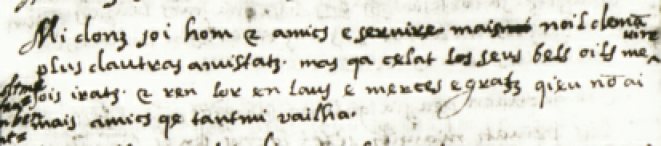 Mi donz soi hom e amics e servire mais noil demā
plus dautras amistatz. mas qa celat los seus bels oils me vire
sois iratz. e ren lor en laus e merces e gratz qieu nō ai
mais amics qe tantmi vailha.